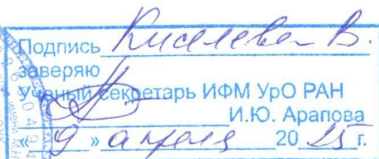 Подпись Киселева В.
заверяю
Ученый секретарь ИФМ УрО РАН
И.Ю. Арапова
« 9 » апреля 20 25 г.